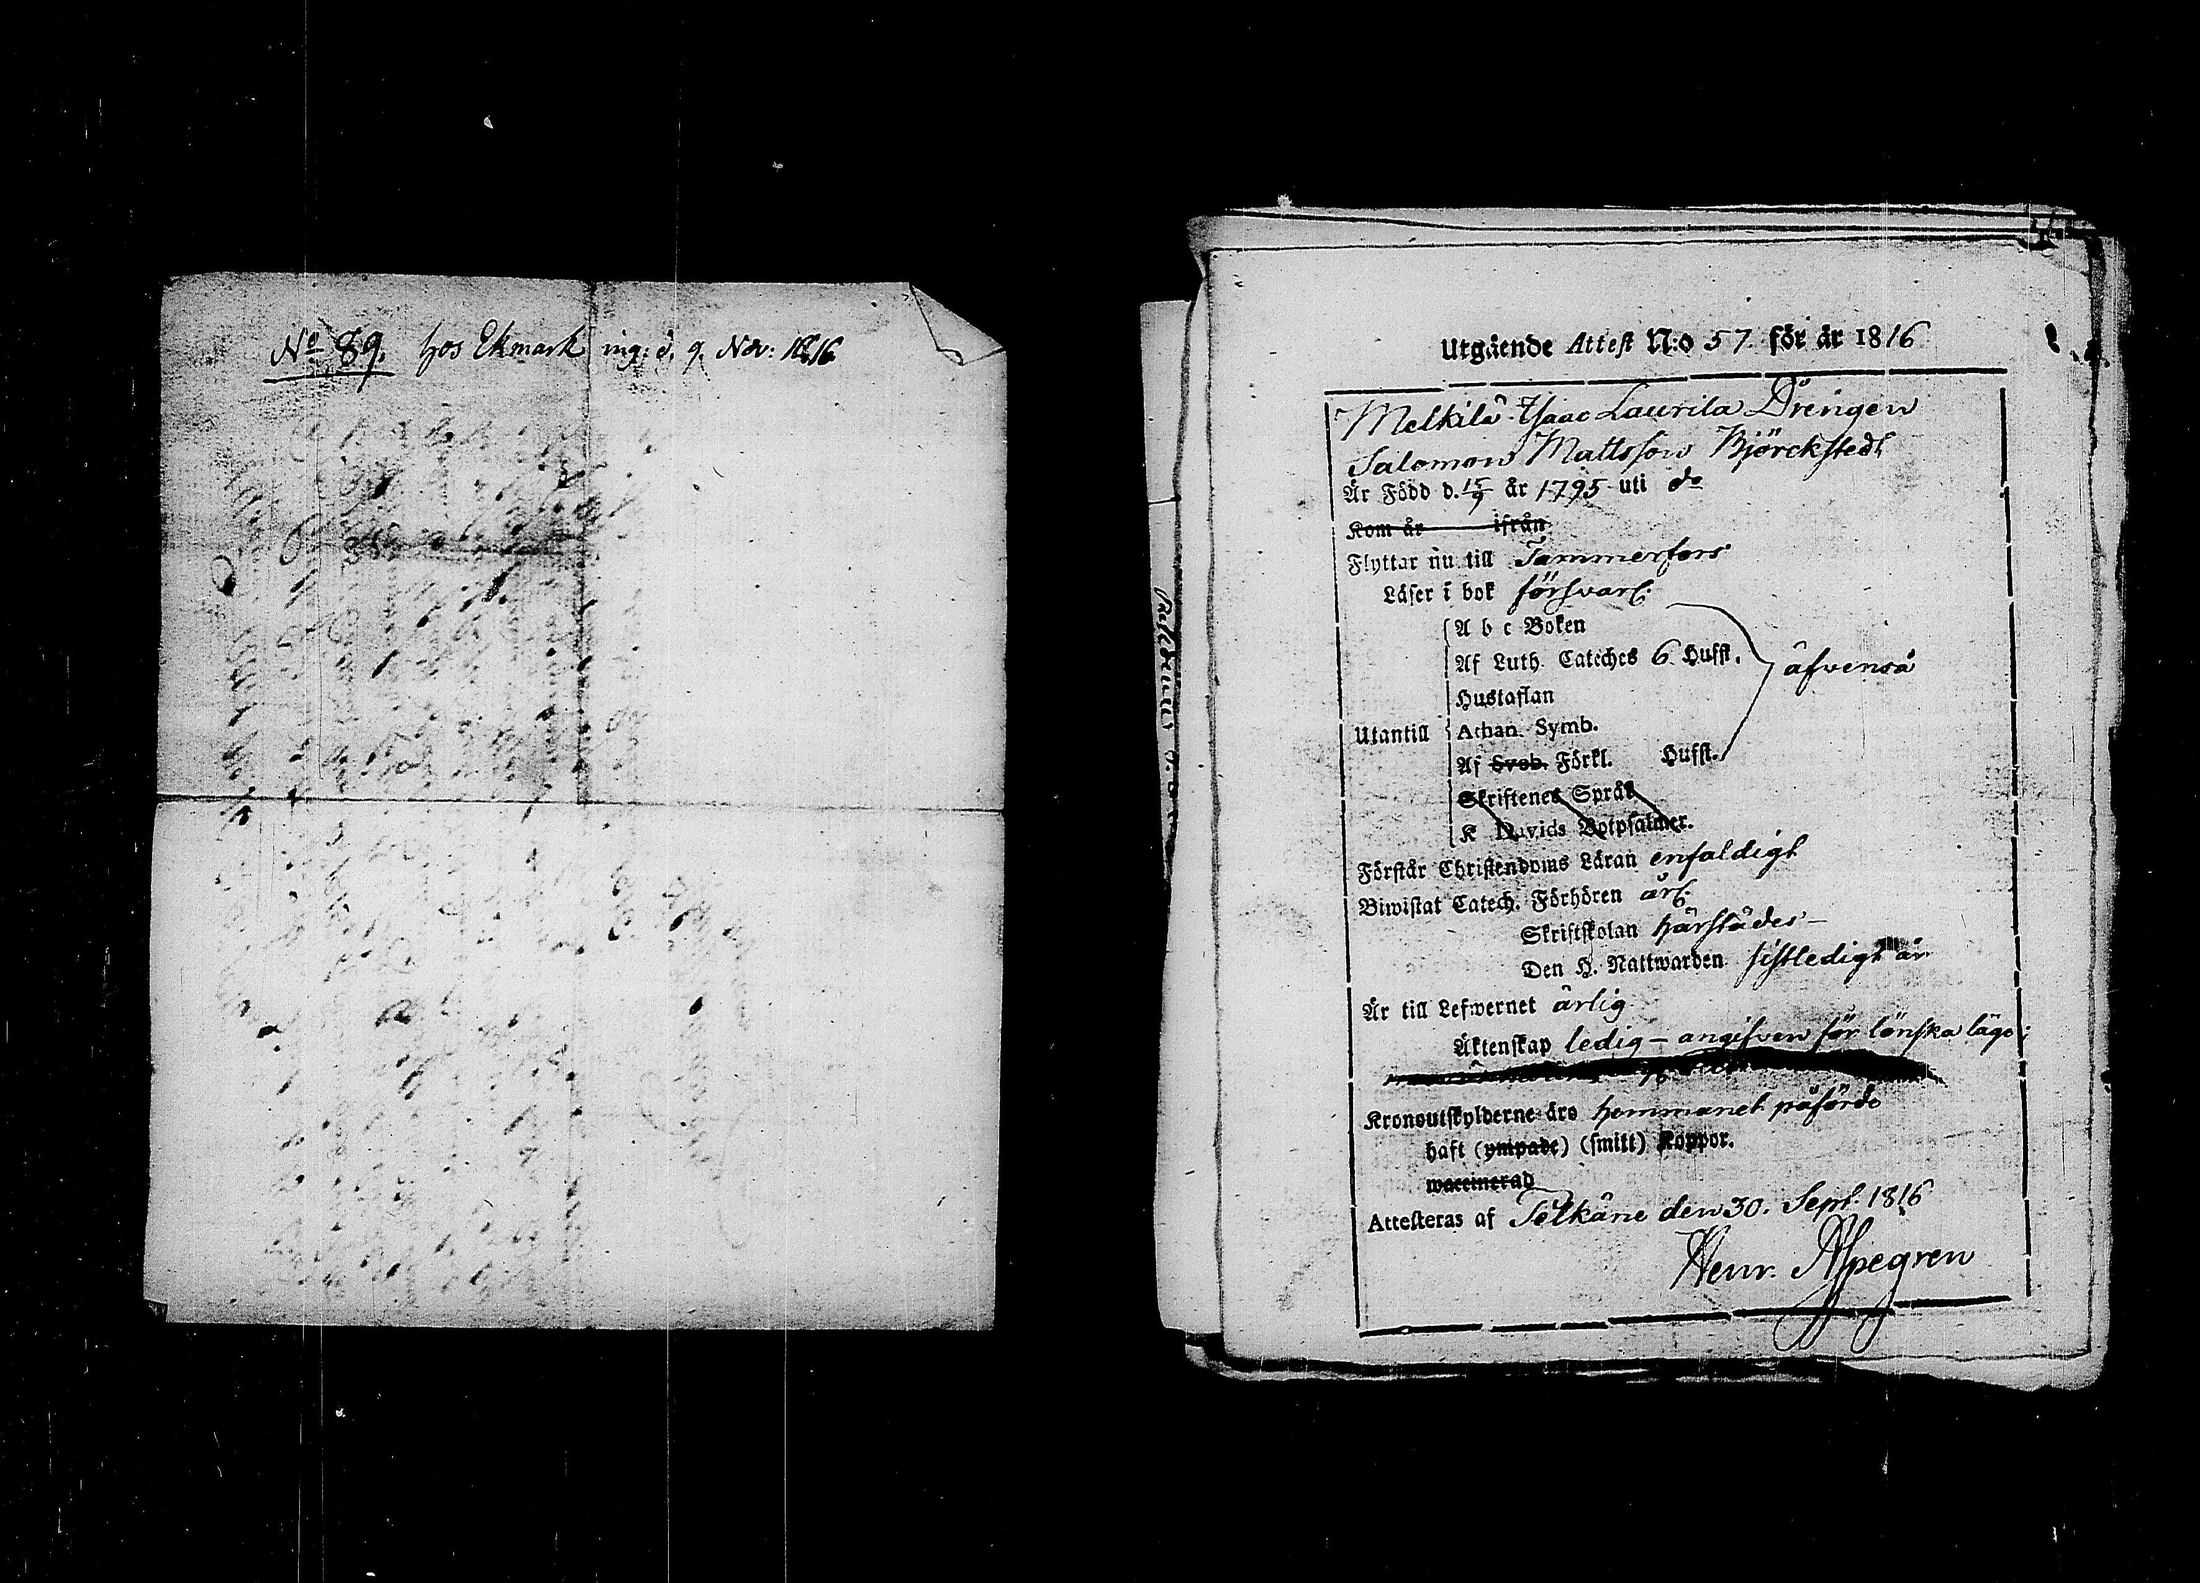 No 89. hos Ekmark ing: d. 9. Nov: 1816
Utgående Attest N:o 57. för år 1816
Melkilä Isaac Laurila Drengen
Salomon Mattsson Björckstedt
Är Född d. 15/9 år 1795 uti do
Kom år ifrån
Flyttar nu till Tammerfors
Läser i bok försvarl:
A b c Boken
Af Luth. Cateches 6. Hufst.
äfvenså
Hustaflan
Utantill
Athan. Symb.
Af Sveb. Förkl. Hufst.
Skriftenes Språk
K Davids Botpsalmer.
Förstår Christendoms Läran enfaldigt
Biwistat Catech. Förhören årl:
Skriftskolan härstädes –
Den H. Nattwarden sistledigt år
Är till Lefwernet ärlig
Äktenskap ledig – angifven för lönskaläge:
Kronoutskylderne äro hemmanet påförde
haft (ympade) (smitt) Koppor.
waccinerad
Attesteras af Selkäne den 30. Sept. 1816
Henr. Aspegren